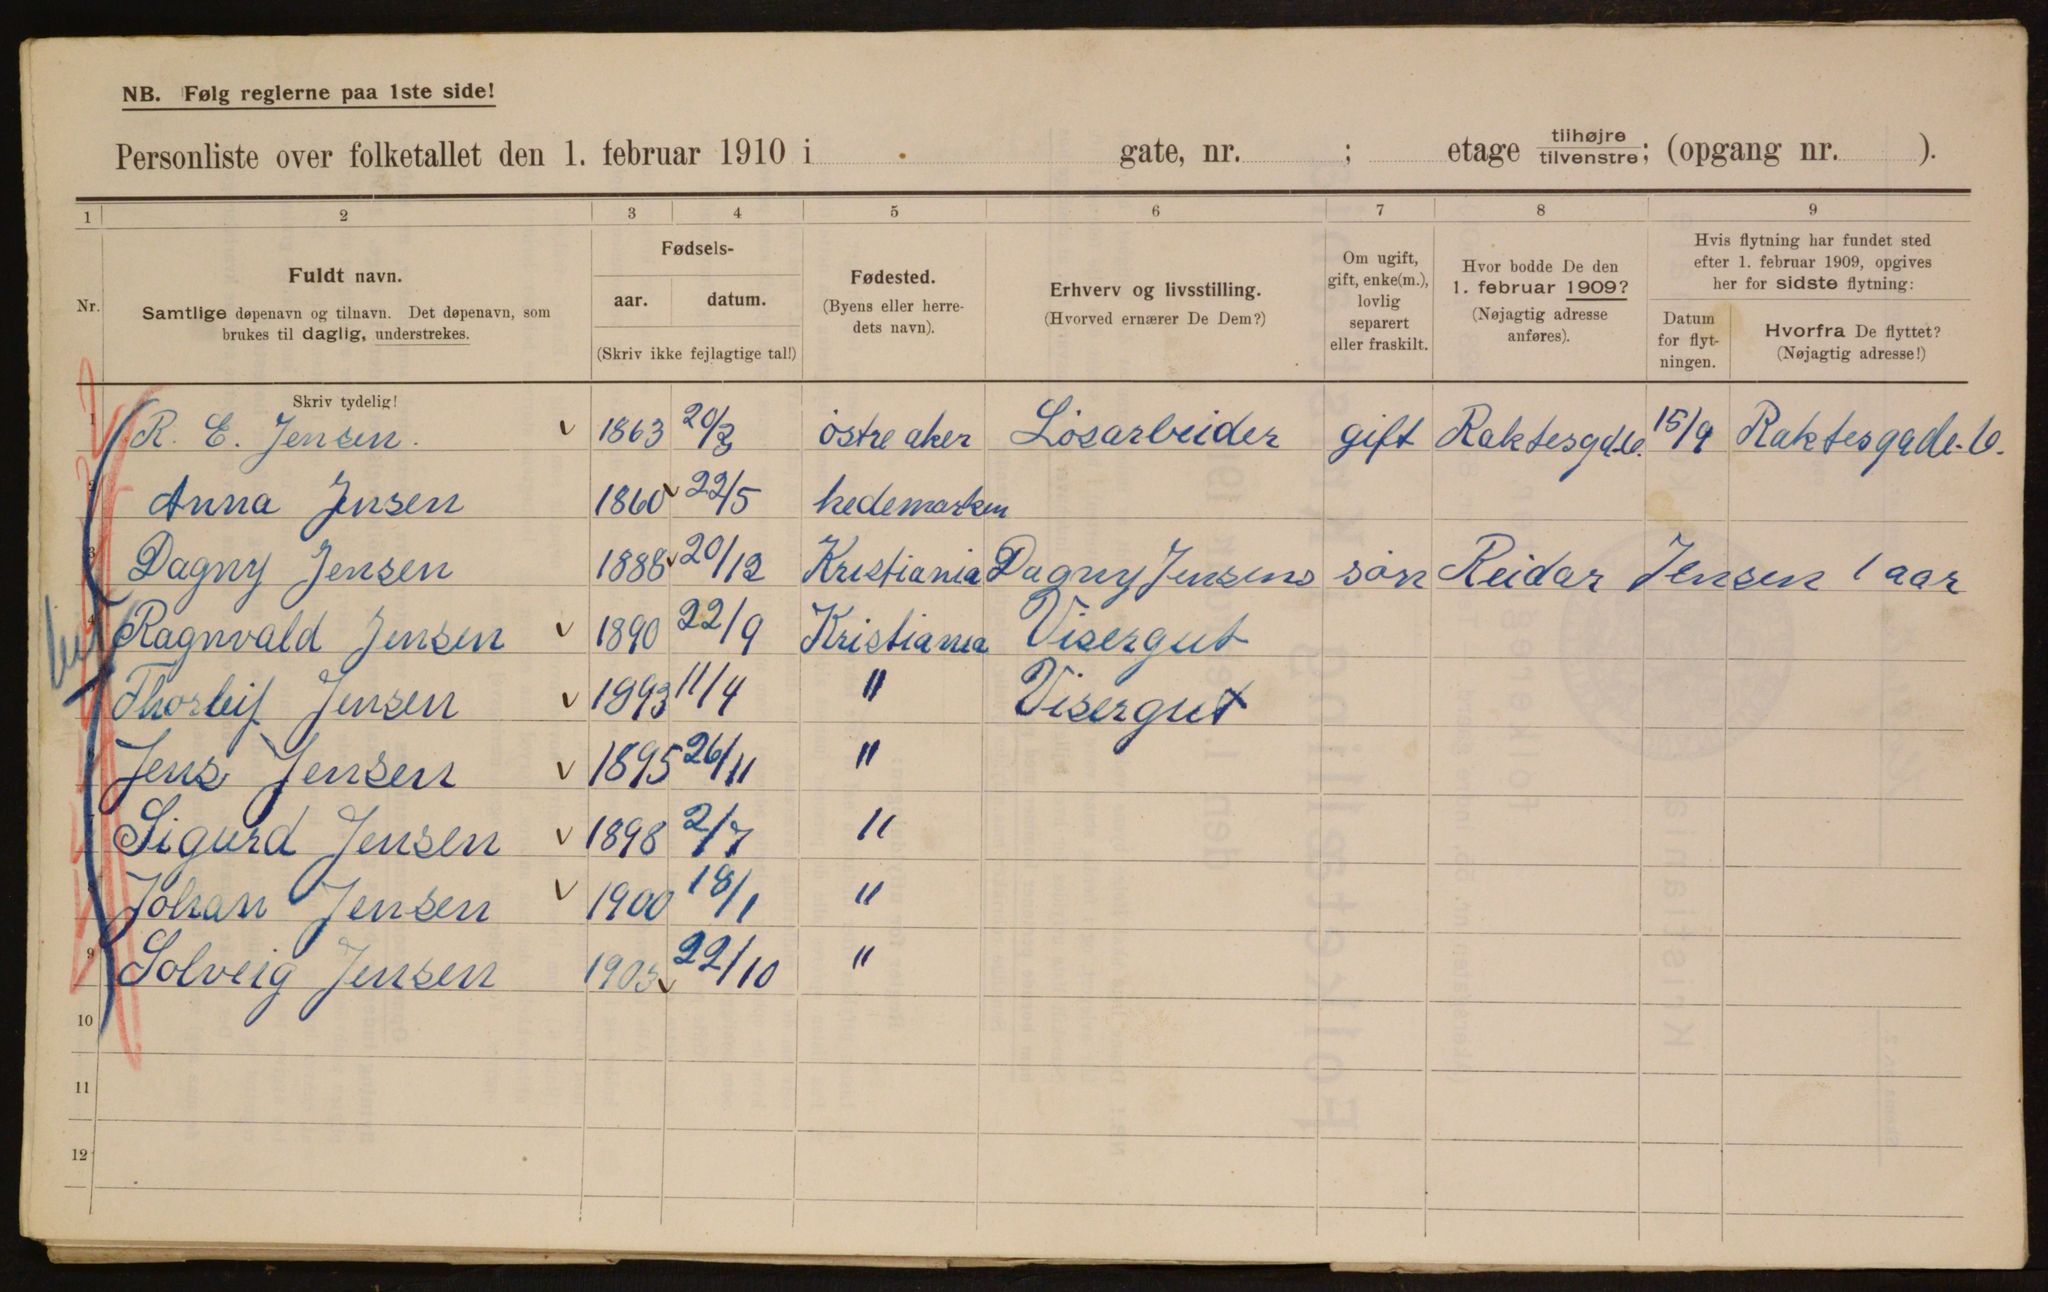 NB. Følg reglerne paa 1ste side!
Personliste over folketallet den 1. februar 1910 i gate, nr. ; etage tilhøjre/tilvenstre; (opgang nr. ).
1 2 3 4 5 6 7 8 9
Nr.
Fuldt navn.
Samtlige døpenavn og tilnavn. Det døpenavn, som
brukes til daglig, understrekes.
Skriv tydelig!
Fødsels-
aar. datum.
(Skriv ikke fejlagtige tal!)
Fødested.
(Byens eller herre-
dets navn).
Erhverv og livsstilling.
(Hvorved ernærer De Dem?)
Om ugift,
gift, enke(m.),
lovlig
separert
eller fraskilt.
Hvor bodde De den
1. februar 1909?
(Nøjagtig adresse
anføres).
Hvis flytning har fundet sted
efter 1. februar 1909, opgives
her for sidste flytning:
Datum
for flyt-
ningen.
Hvorfra De flyttet?
(Nøjagtig adresse!)
1 R. E. Jensen. 1863 20/3 østre aker Løsarbeider gift 15/9
2 Anna Jensen 1860 22/5 hedemarken
3 Dagny Jensen 1888 20/12 Kristiania Dagny Jensens søn Reidar Jensen 1 aar
4 Ragnvald Jensen 1890 22/9 Kristiania Visergut
Thorleif Jensen 1893 11/4 " Visergut
Jens Jensen 1895 26/11 "
Sigurd Jensen 1898 2/7 "
8 Johan Jensen 1900 18/1 "
9 Solveig Jensen 22/10 "
10
11
12